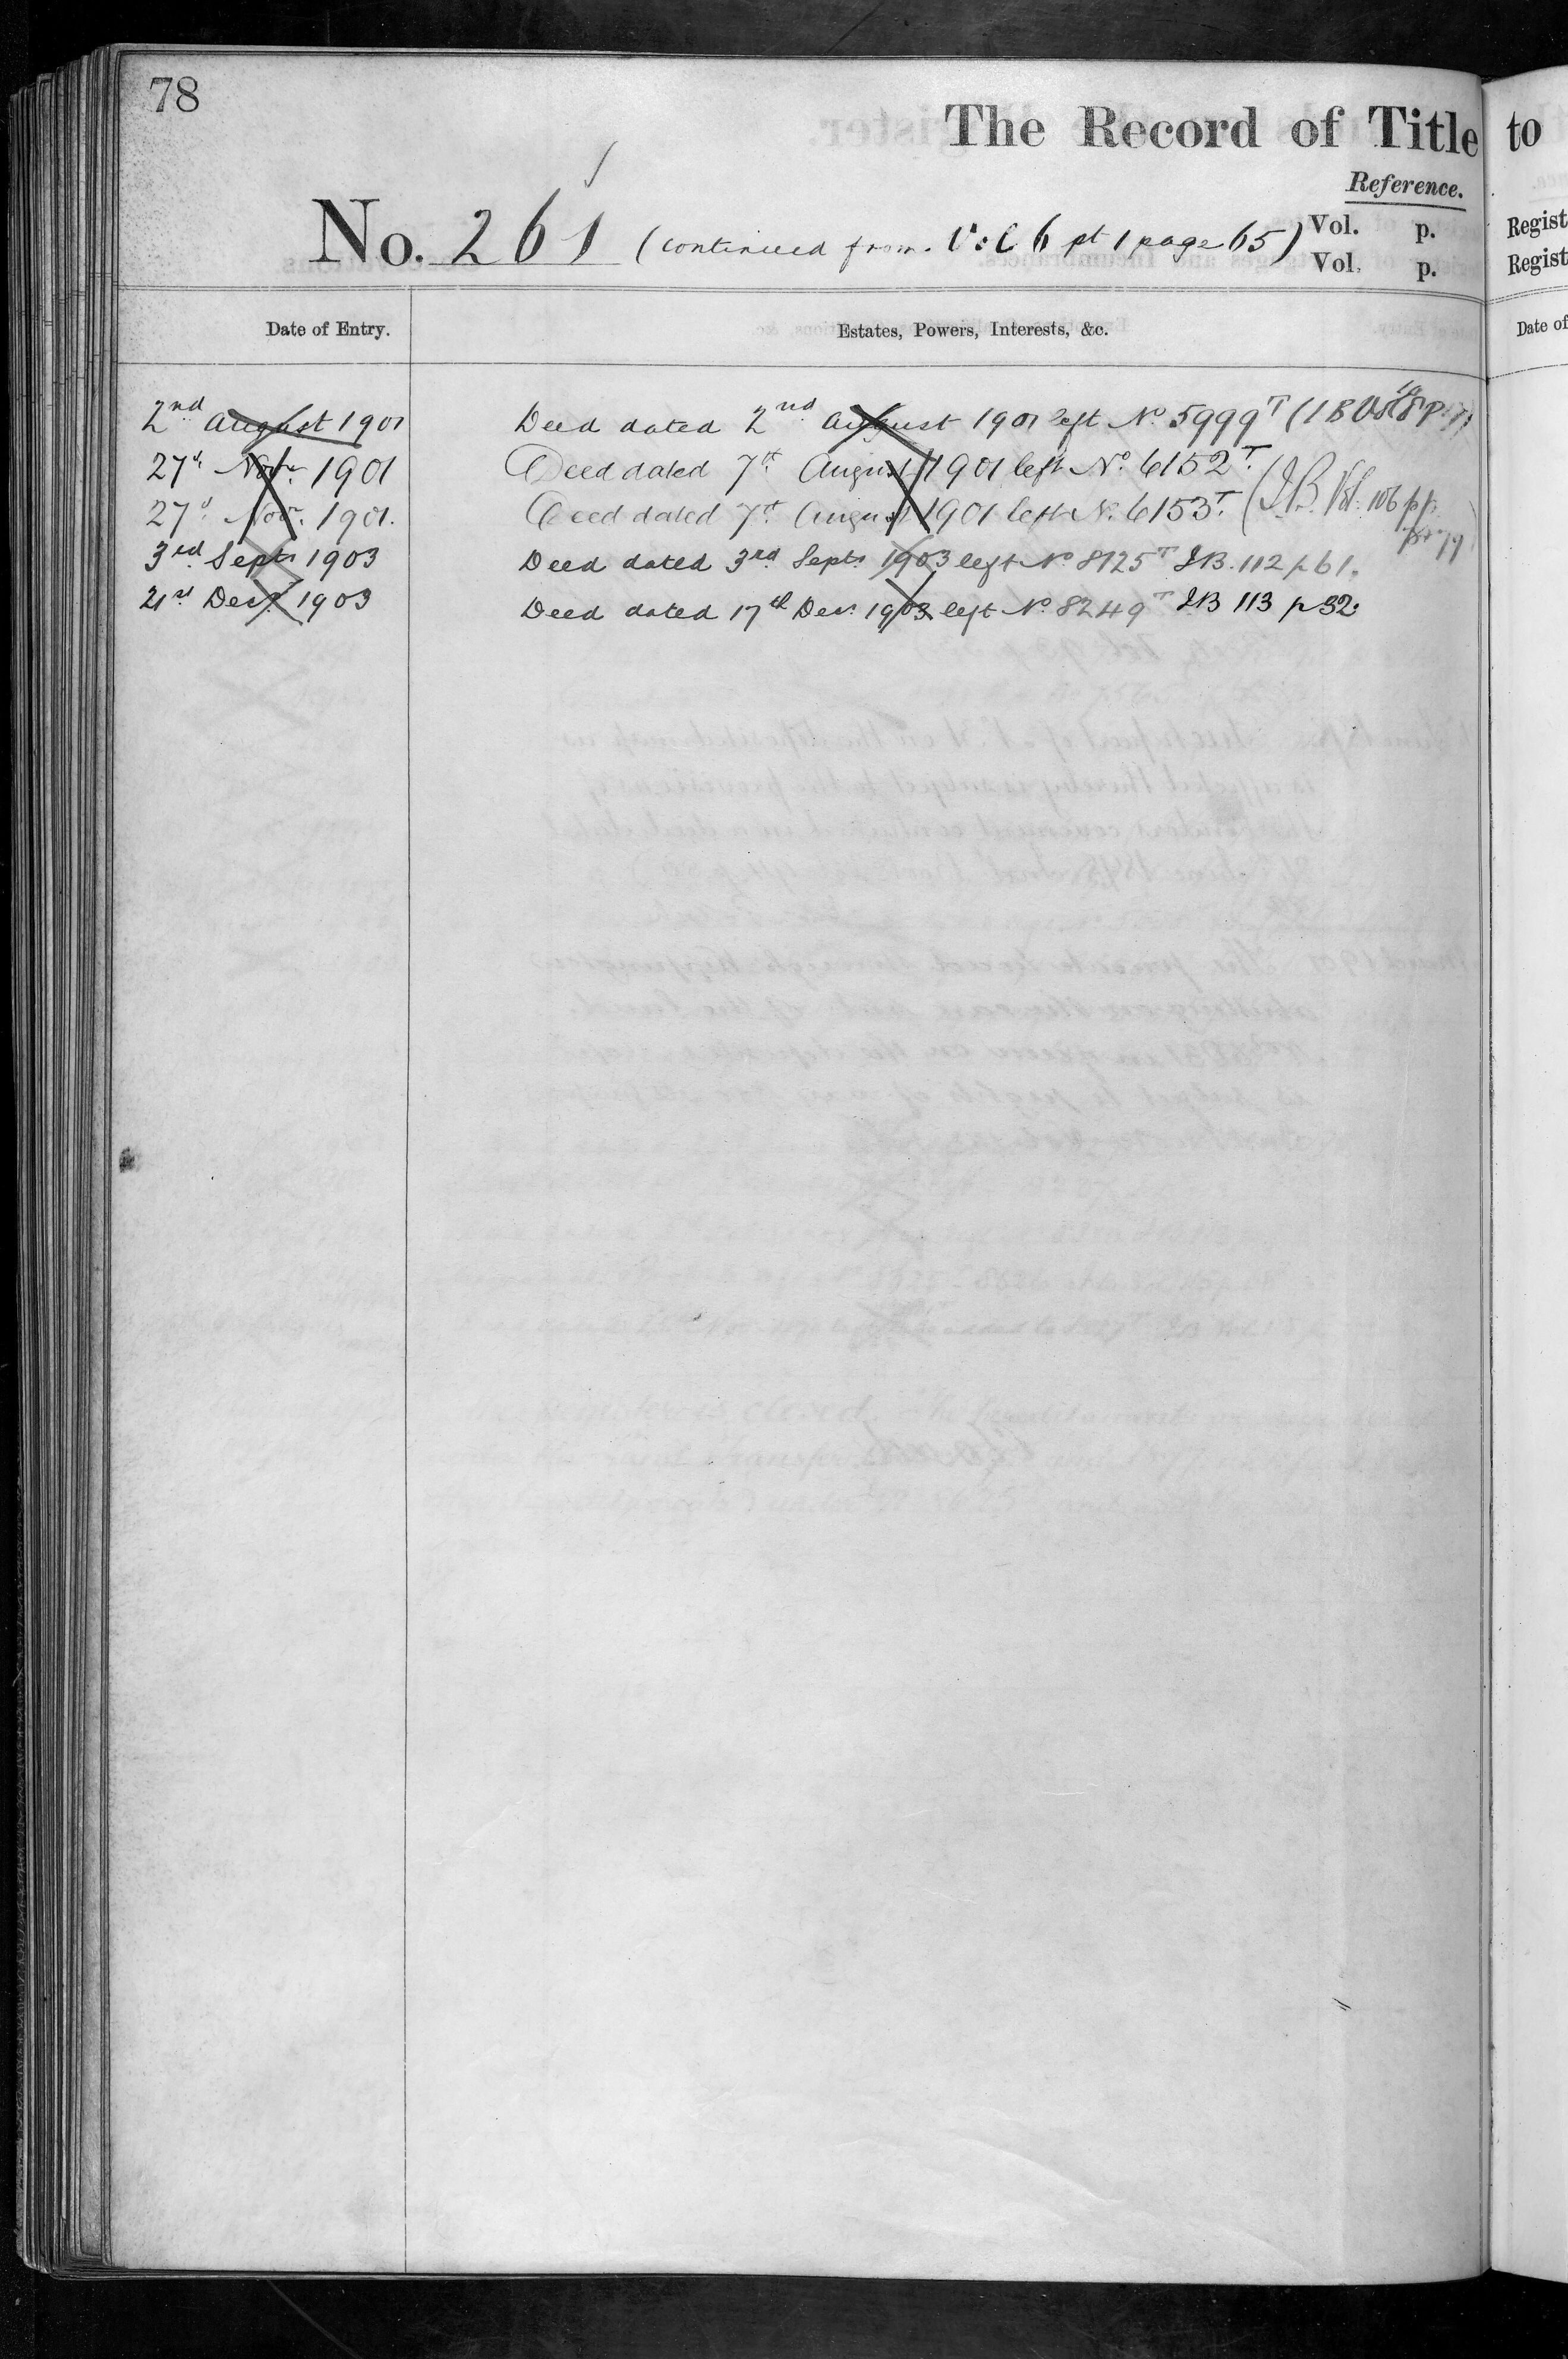 78
The Record of Title to
Reference.
No. 261 (continued from Vol 6 pt 1 page 65) Vol. p. Regist
Vol. p. Regist
Date of Entry. Estates, Powers, Interests, &c. Date of
2nd August 1901 Deed dated 2nd August 1901 left No 5999T
27th Novr. 1901 Deed dated 7th August 1901 left No. 6152T.
27th Novr. 1901. Deed dated 7th August 1901 left No. 6153T. (I.B. Vol. 106 pp.
3rd Septr 1903 Deed dated 3rd Septr 1903 left No 8125T IB. 112 p 61.
21st Decr 1903 Deed dated 17th Decr 1903 left No 8249T IB 113 p 32.